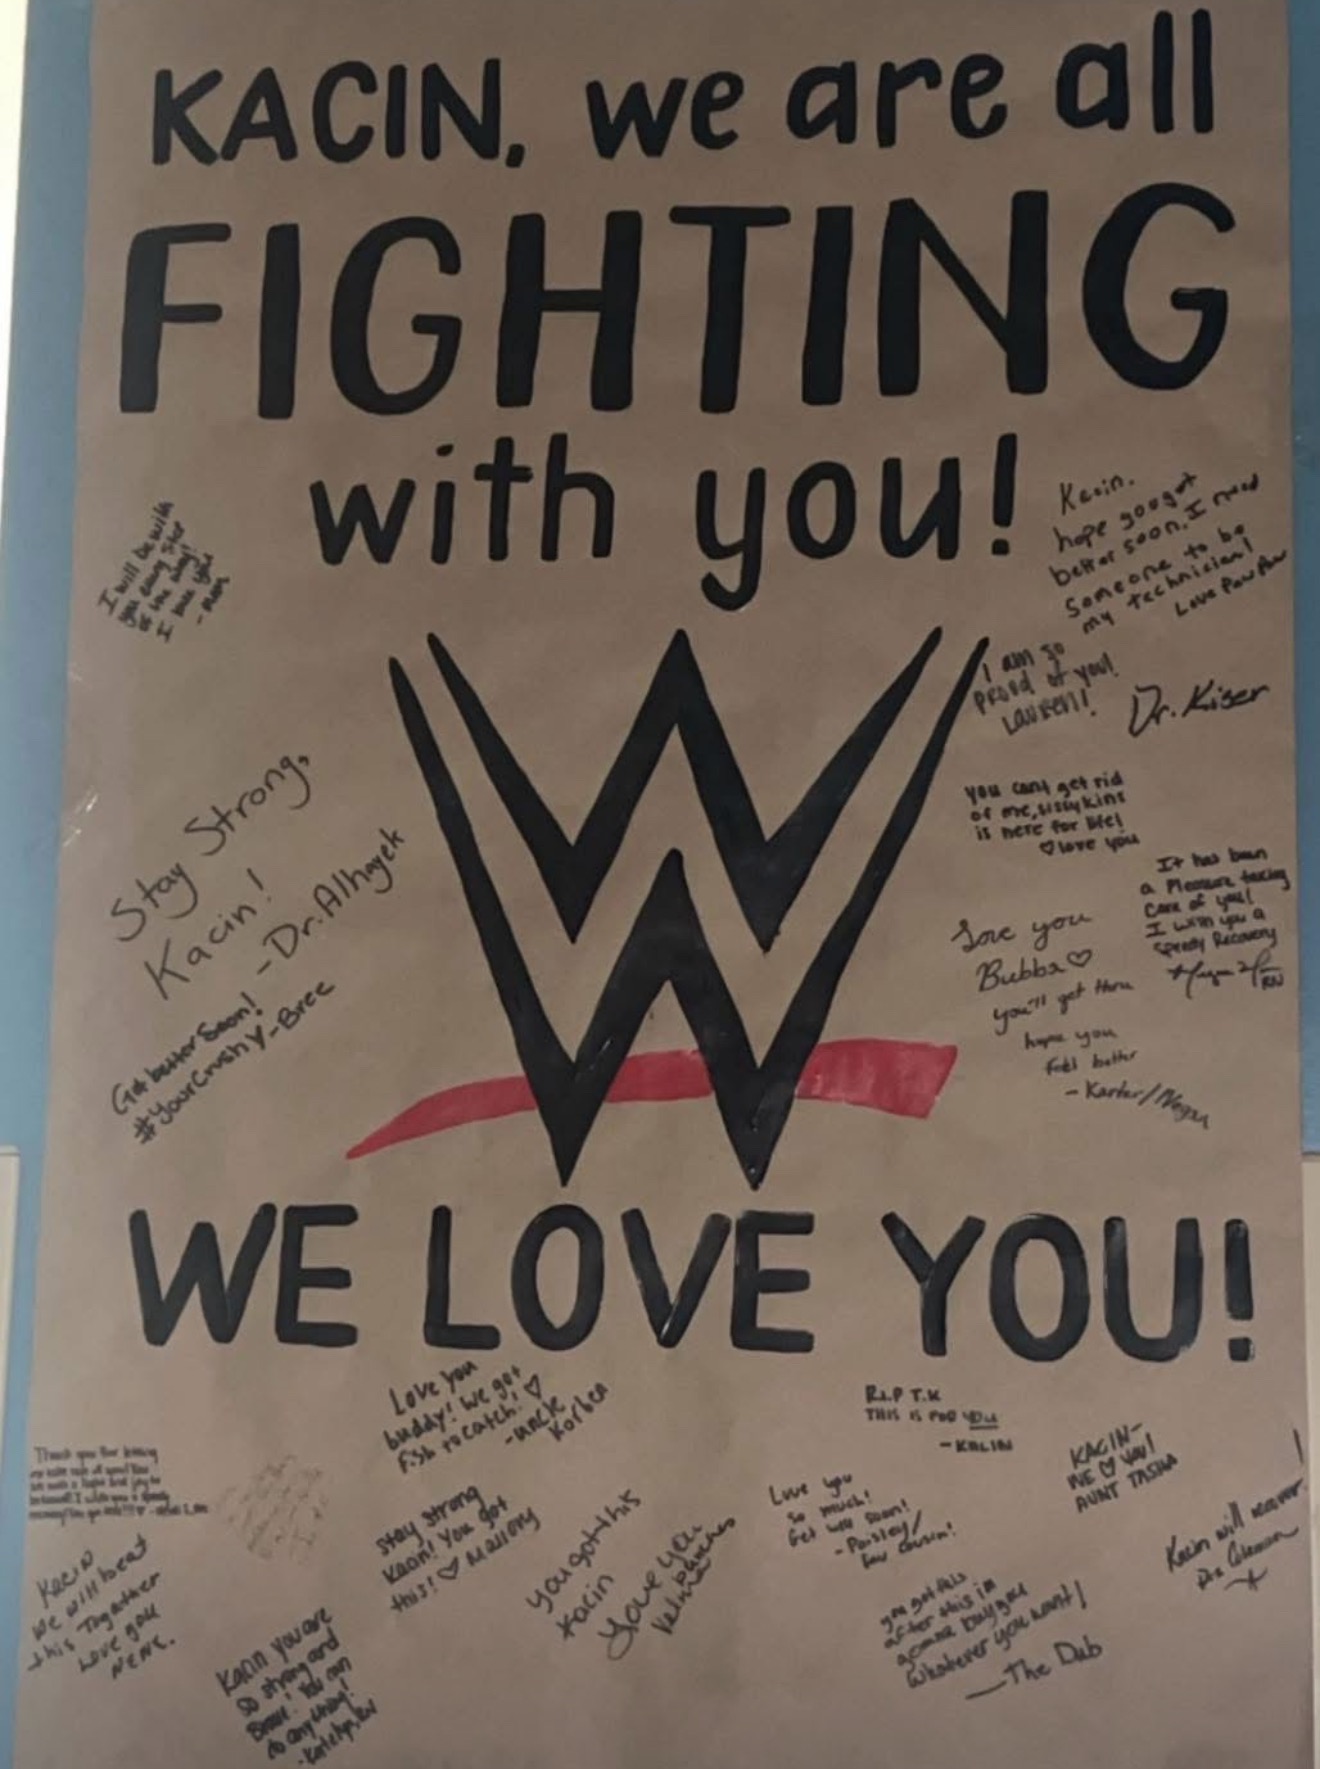 KACIN, we are all
FIGHTING
with you!
I will be with
you every step
of the way!
I love you
- mom
Kacin.
hope you get
better soon. I need
someone to be
my technician!
Love Paw Paw
I am so
proud of you!
Lauren!
Dr. Kiser
Stay Strong,
Kacin!
-Dr. Alhayek
you cant get rid
of me, sissykins
is here for life!
♡ love you
It has been
a Pleasure taking
Care of you!
I wish you a
Speedy Recovery
RN
Love you
Bubba ♡
you'll get thru
hope you
feel better
- Karter/Megan
Get better Soon!
#YourCrushY-Bree
WE LOVE YOU!
Love you
buddy! We got
fish to catch! ♡
- uncle
Korben
R.I.P T.K
THIS IS FOR YOU
- KALIN
KACIN-
WE ♡ YOU!
AUNT TASHA
Thank you for being
Kacin will recover!
Dr. Coleman
Stay strong
Kacin! You got
this! ♡ Mallory
you got this
Kacin
Love you
Love you
so much!
Get well soon!
- Paisley/
fav cousin!
Kacin
We will beat
this Together
Love you
NeNe.
Kacin you are
so strong and
Brave! You can
do anything!
- Katelyn, RN
you got this
after this im
gonna buy you
whatever you want!
— The Dub